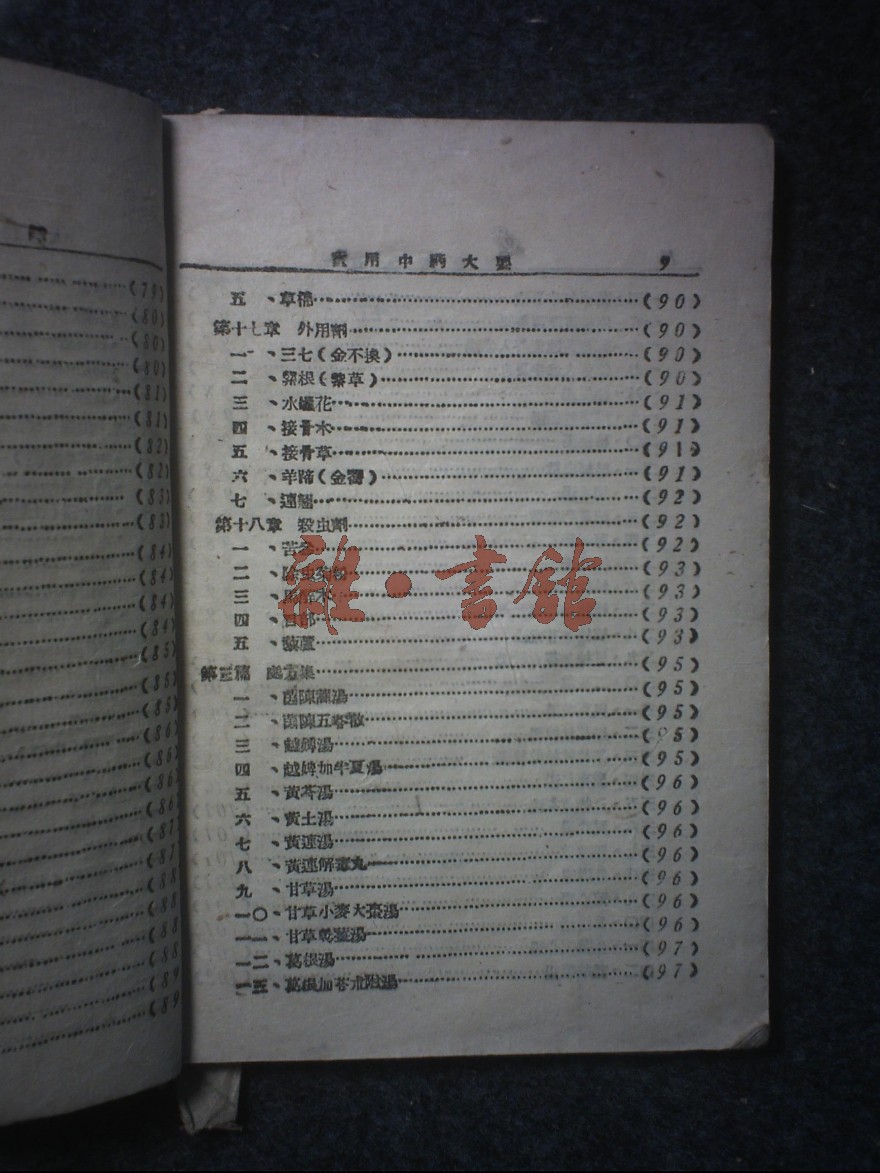 實用中藥大要 9
五、草棉……(90)
第十七章 外用劑……(90)
一、三七(金不換)……(90)
二、紫根(紫草)……(90)
三、水蠟花……(91)
四、接骨木……(91)
五、接骨草……(91)
六、羊蹄(金蕎)……(91)
七、連翹……(92)
第十八章 殺虫劑……(92)
一、苦參……(92)
二、除虫菊粉……(93)
三、馬醉木……(93)
四、百部……(93)
五、藜蘆……(93)
第三篇 處方集……(95)
一、茵陳蒿湯……(95)
二、茵陳五苓散……(95)
三、越婢湯……(95)
四、越婢加半夏湯……(95)
五、黃芩湯……(96)
六、黃土湯……(96)
七、黃連湯……(96)
八、黃連解毒丸……(96)
九、甘草湯……(96)
一〇、甘草小麥大棗湯……(96)
一一、甘草乾薑湯……(96)
一二、葛根湯……(97)
一三、葛根加苓朮附湯……(97)
(79)
(80)
(80)
(80)
(81)
(81)
(82)
(82)
(83)
(83)
(84)
(84)
(84)
(84)
(85)
(85)
(85)
(86)
(86)
(86)
(86)
(87)
(87)
(88)
(88)
(88)
(88)
(89)
(89)
雜·書舘